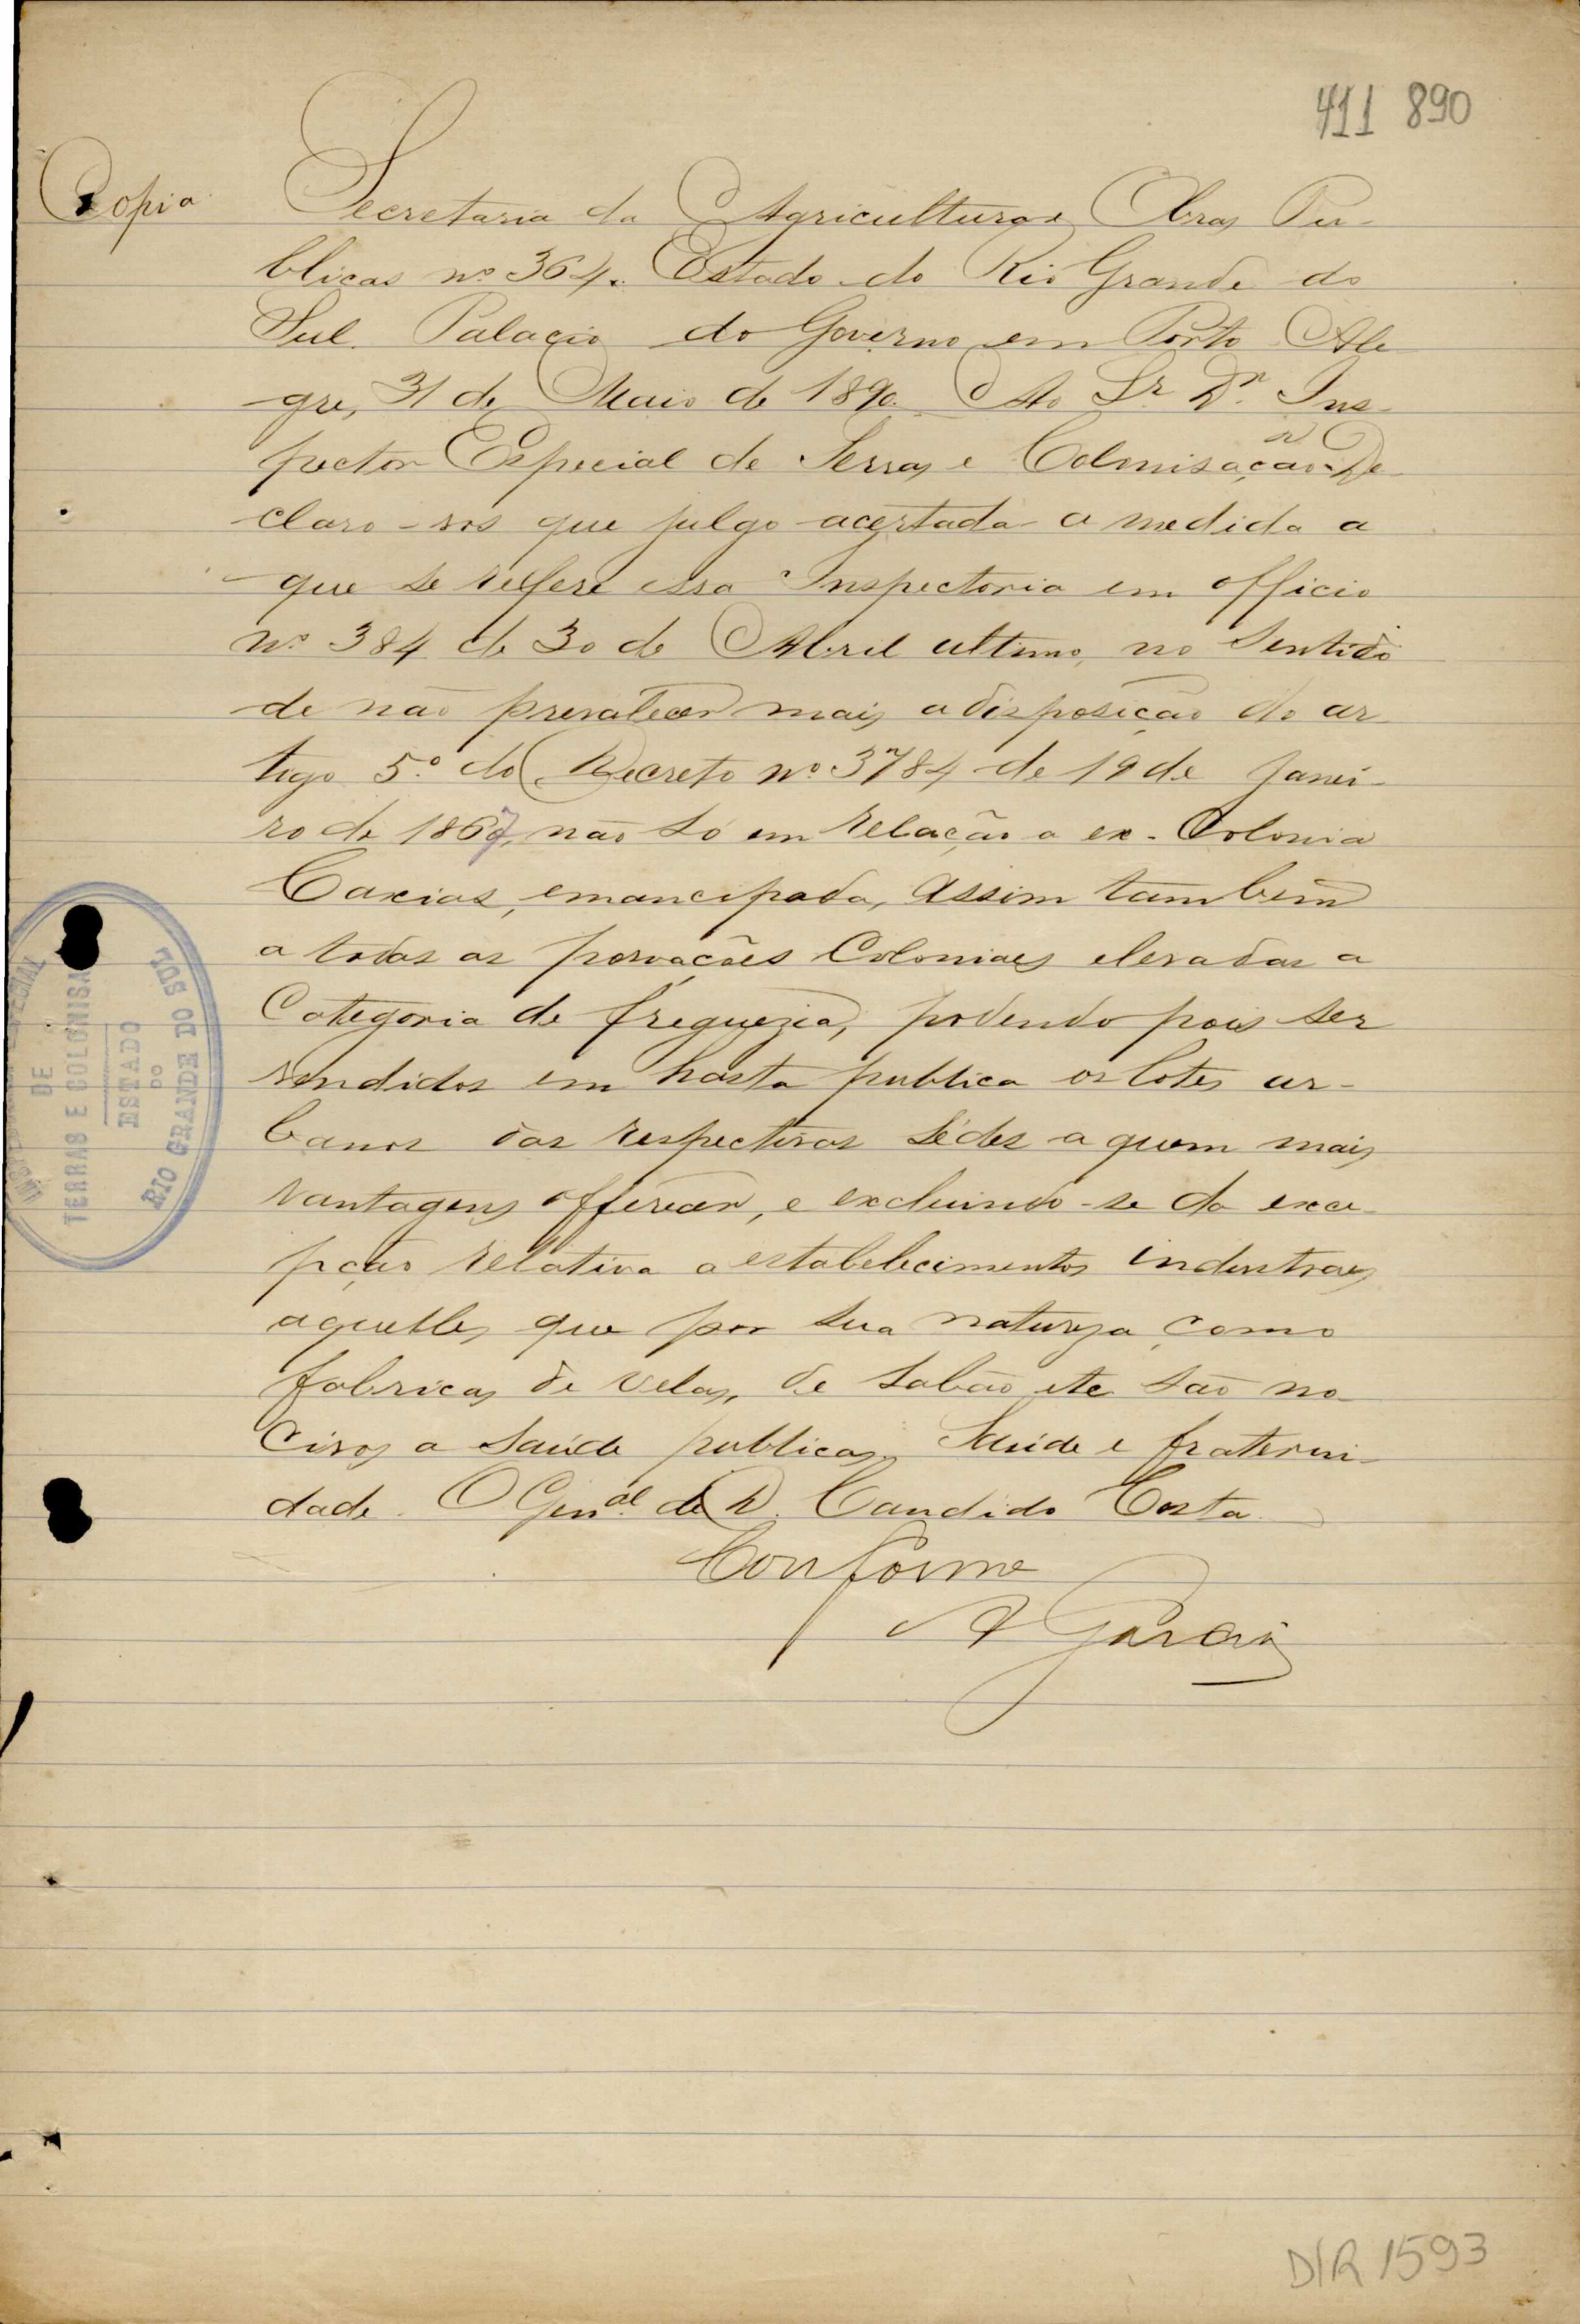 411 890
Copia
Secretaria da Agricultura e Obras Pu-
blicas nº 364. Estado do Rio Grande do
Sul. Palacio do Governo em Porto Ale
gre, 31 de Maio de 1890. Ao Sr. Dr. Ins-
pector Especial de Terras e Colonisação. De
claro-vos que julgo acertada a medida a
que se refere essa Inspectoria em officio
nº 384 de 30 de Abril ultimo, no sentido
de não prevalecer mais a disposição do ar
tigo 5.º do Decreto nº 3784 de 19 de Janei-
ro de 1867, não só em relação a ex-Colonia
Caxias, emancipada, assim tambem
a todas as povoações Coloniaes elevadas a
Categoria de freguezia, podendo pois ser
vendidos em hasta publica os lotes ur-
banos das respectivas sédes a quem mais
vantagens offerecer, e excluindo-se da exce-
pção relativa a estabelecimentos industraes
aquelles que por sua natureza, como
fabricas de velas, de sabão etc são no
civos a saúde publica. Saúde e fraterni-
dade. O Genal. de D. Candido Costa.
Conforme
A Garcia
DE
TERRAS E COLONISA
ESTADO
DO
RIO GRANDE DO SUL
DIR 1593